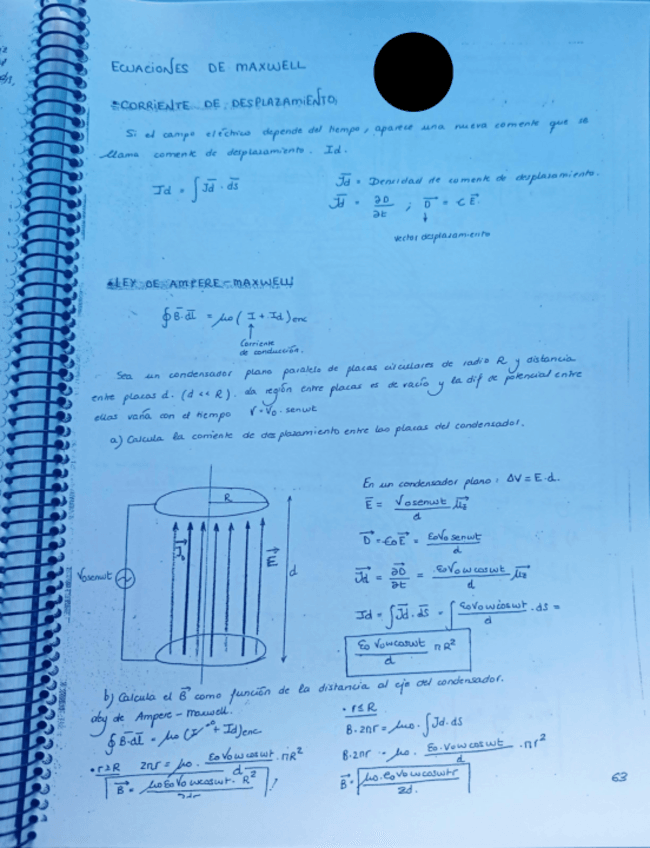 ECUACIONES DE MAXWELL
*CORRIENTE DE DESPLAZAMIENTO
Si el campo eléctrico depende del tiempo, aparece una nueva corriente que se
llama corriente de desplazamiento. Id.
Id = ∫ J̅d · d̅s
J̅d = Densidad de corriente de desplazamiento.
J̅d = ∂D/∂t ; D⃗ = ϵ E⃗.
↓
vector desplazamiento
*LEY DE AMPERE-MAXWELL
∮ B̅·d̅l = μo (I + Id)enc
↑
Corriente
de conducción.
Sea un condensador plano paralelo de placas circulares de radio R y distancia
entre placas d. (d << R). La región entre placas es de vacío y la dif de potencial entre
ellas varía con el tiempo V=Vo. senwt
a) Calcula la corriente de desplazamiento entre las placas del condensador.
R
E⃗
d
Vosenwt
En un condensador plano: ΔV = E·d.
E̅ = Vosenwt/d u⃗z
D⃗ = ϵoE⃗ = ϵoVosenwt/d
J⃗d = ∂D⃗/∂t = ϵoVowcoswt/d u⃗z
Id = ∫ J̅d · d̅s = ∫ ϵoVowcoswt/d · ds =
ϵo Vowcoswt/d πR²
b) Calcula el B⃗ como función de la distancia al eje del condensador.
Ley de Ampere-maxwell.
∮ B̅·d̅l = μo (I→0 + Id)enc
• r≥R 2πr = μo · ϵoVowcoswt/d · πR²
B⃗ = μoϵoVowcoswt · R²
• r≤R
B·2πr = μo · ∫ Jd·ds
B·2πr = μo · ϵo·Vowcoswt/d · πr²
B⃗ = μo·ϵoVowcoswt r/2d.
63